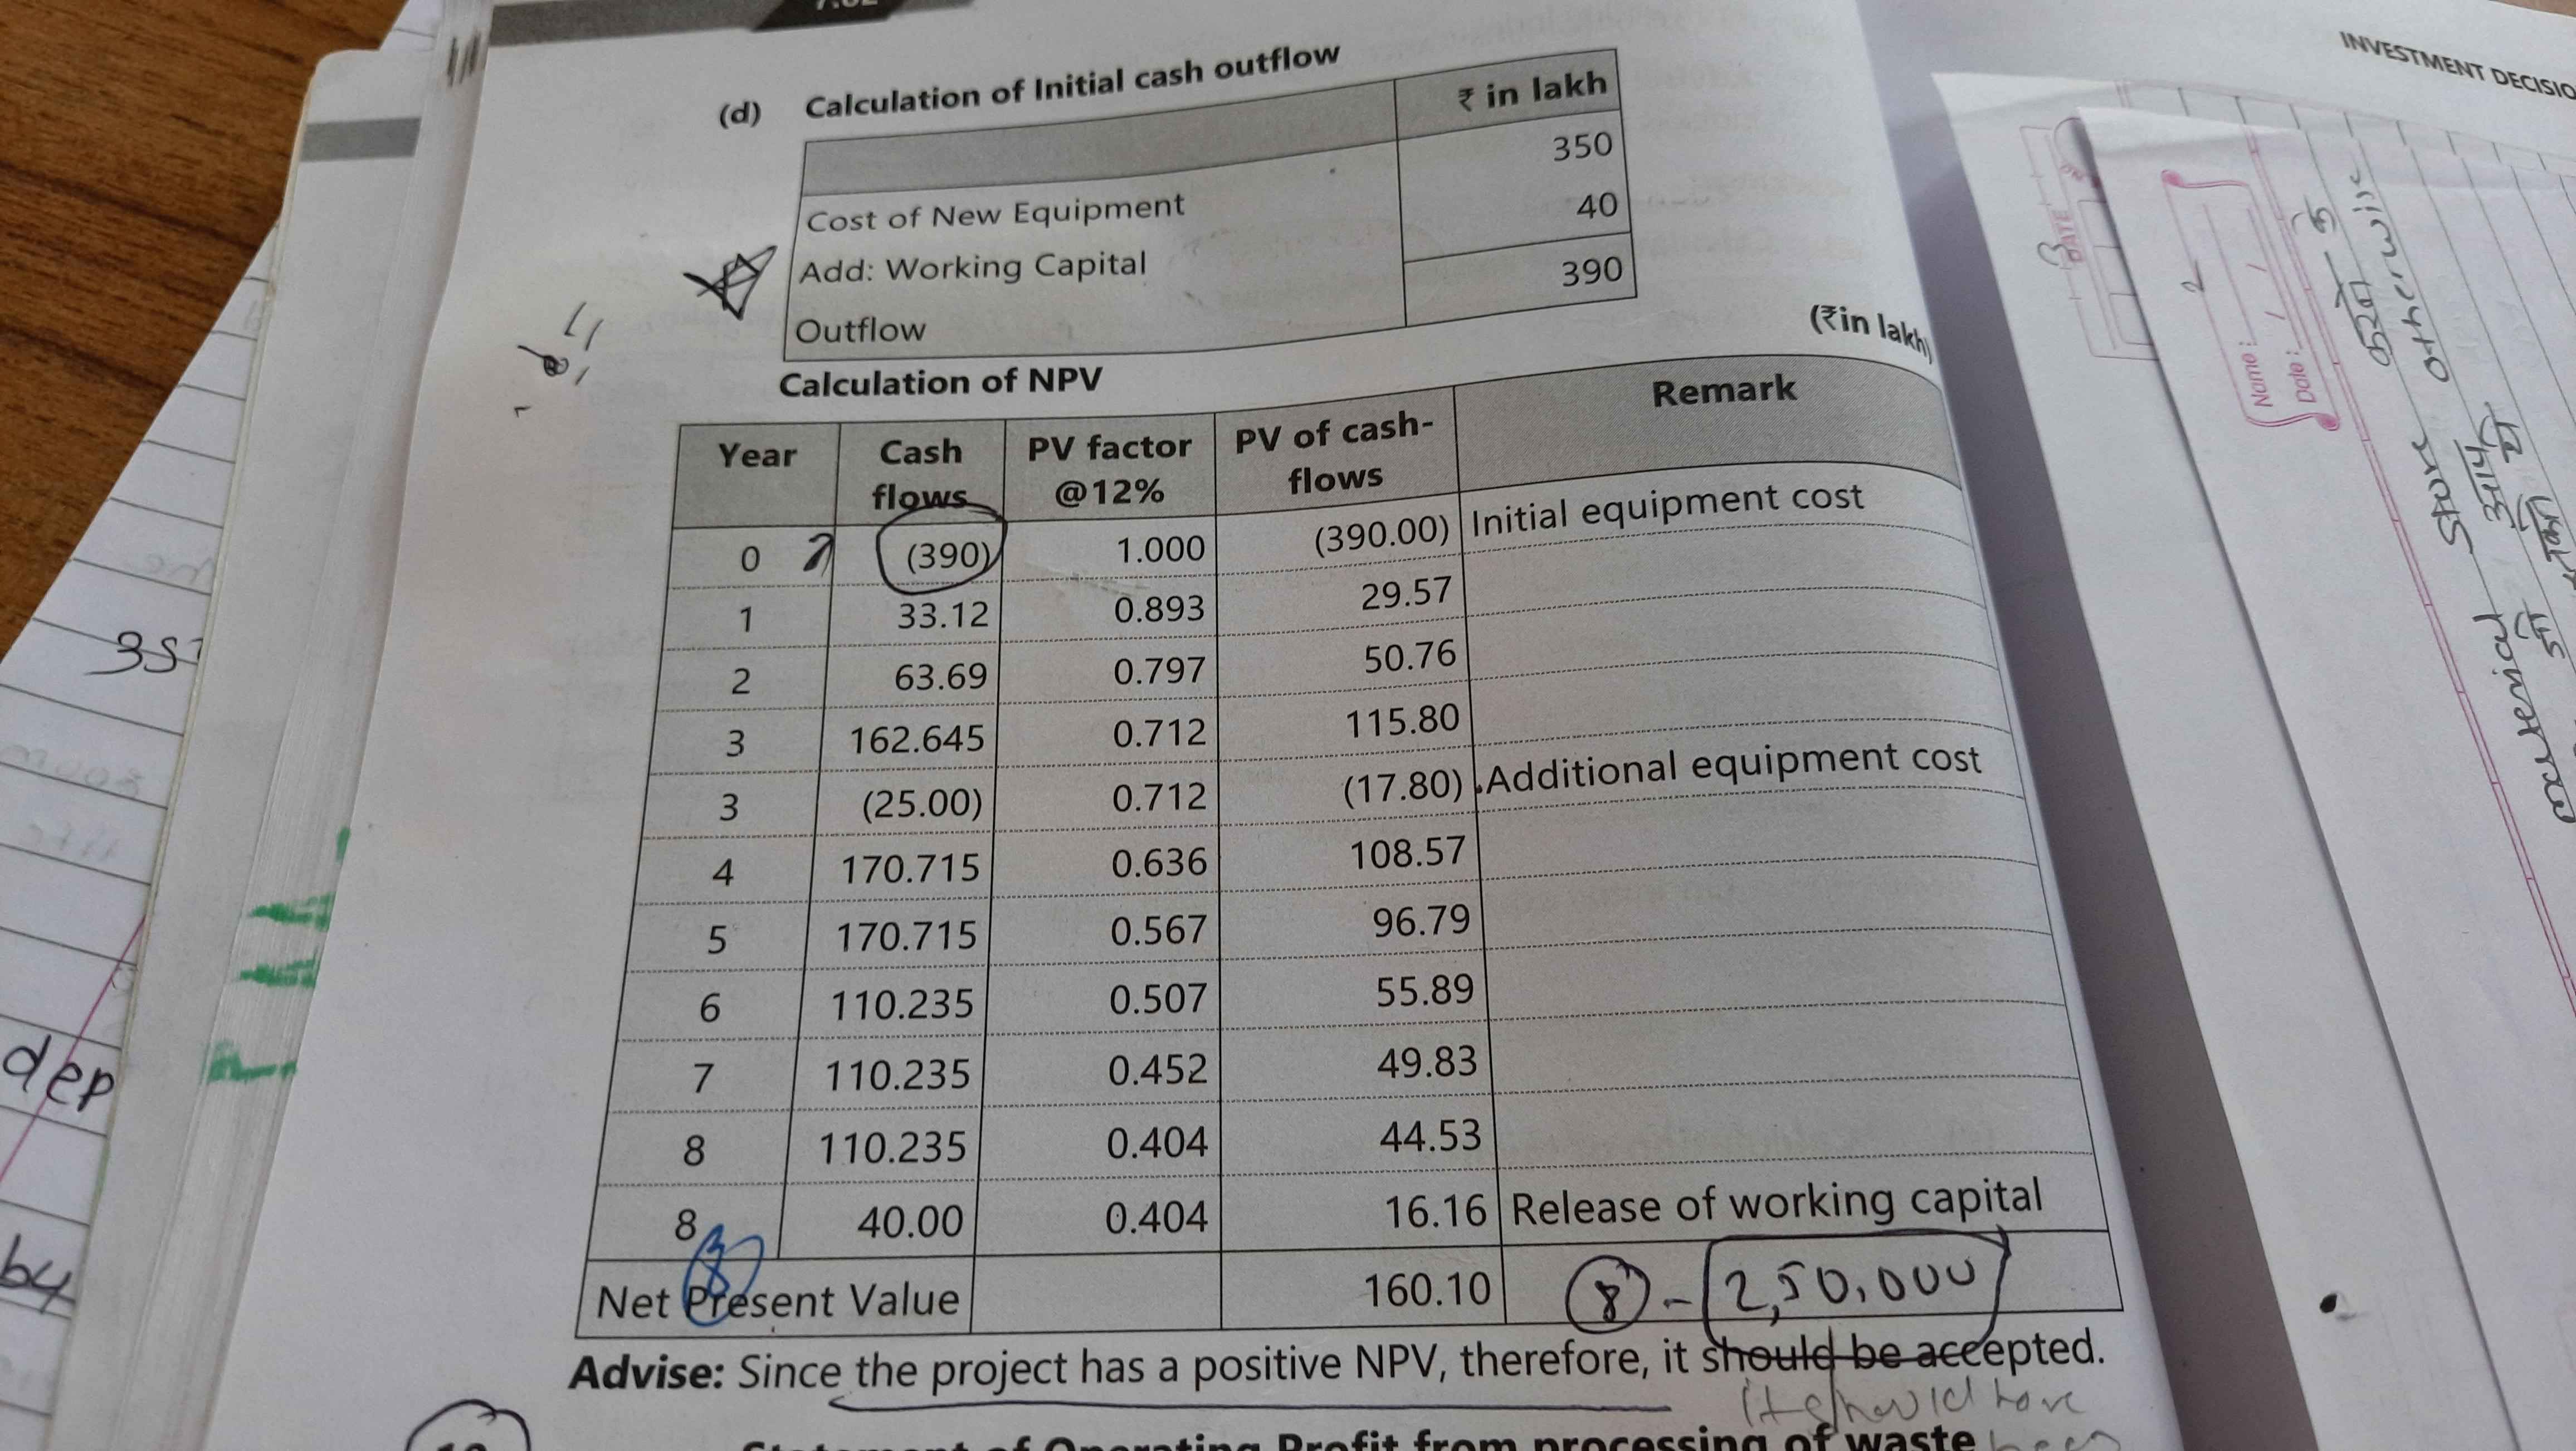 INVESTMENT DECISIO
(d) Calculation of Initial cash outflow
₹ in lakh
Cost of New Equipment 350
Add: Working Capital 40
Outflow 390
Calculation of NPV (₹in lakh)
Year Cash flows PV factor @12% PV of cash-flows Remark
0 (390) 1.000 (390.00) Initial equipment cost
1 33.12 0.893 29.57
2 63.69 0.797 50.76
3 162.645 0.712 115.80
3 (25.00) 0.712 (17.80) Additional equipment cost
4 170.715 0.636 108.57
5 170.715 0.567 96.79
6 110.235 0.507 55.89
7 110.235 0.452 49.83
8 110.235 0.404 44.53
8 40.00 0.404 16.16 Release of working capital
Net Present Value 160.10 8 - 2,50,000
Advise: Since the project has a positive NPV, therefore, it should be accepted.
it should have
Statement of Operating Profit from processing of waste
dep
by
DATE
Name:
Date: / /
otherwise